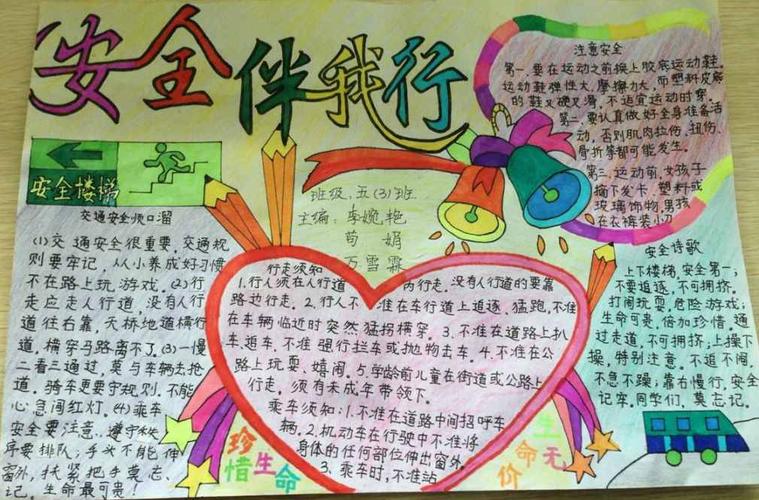 安全伴我行
安全楼梯
交通安全顺口溜
(1)交通安全很重要,交通规
则要牢记,从小养成好习惯
不在路上玩游戏。(2)行
走应走人行道,没有人行
道往右靠,天桥地道横行
道,横穿马路离不了。(3)一慢
二看三通过,莫与车辆去抢
道。骑车更要守规则,不能
心急闯红灯。(4)乘车
安全要注意,遵守秩
序要排队;手头不能伸
窗外,扶紧把手莫忘
记。生命最可贵!
班级:五(3)班
主编:李婉艳
苟 娟
万雪霖
行走须知
1.行人须在人行道内行走,没有人行道的要靠
路边行走。2.行人不准在车行道上追逐、猛跑,不准
在车辆临近时突然猛拐横穿。3.不准在道路上扒
车、追车,不准强行拦车或抛物击车。4.不准在公
路上玩耍、嬉闹。5.学龄前儿童在街道或公路上
行走,须有未成年带领下。
乘车须知:1.不准在道路中间招呼车
辆。2.机动车在行驶中不准将
身体的任何部位伸出窗外。
3.乘车时,不准站
珍惜生命
生命无价
注意安全
第一,要在运动之前换上胶底运动鞋。
运动鞋弹性大,摩擦力大,而塑料皮底
的鞋又硬又滑,不适宜运动时穿。
第二,要认真做好全身准备活
动,否则肌肉拉伤、扭伤、
骨折等都可能发生。
第三,运动前,女孩子
摘下发卡、塑料或
玻璃饰物,男孩
在衣裤装小刀
安全诗歌
上下楼梯,安全第一;
不要追逐,不可拥挤。
打闹玩耍,危险游戏;
生命可贵,倍加珍惜。通
过走道,不可拥挤;上操下
操,特别注意。不追不闹,
不急不躁;靠右慢行,安全
记牢。同学们,莫忘记。